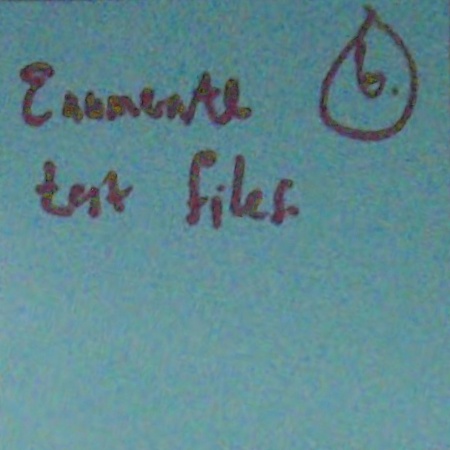 6.
Enumerate
test files.